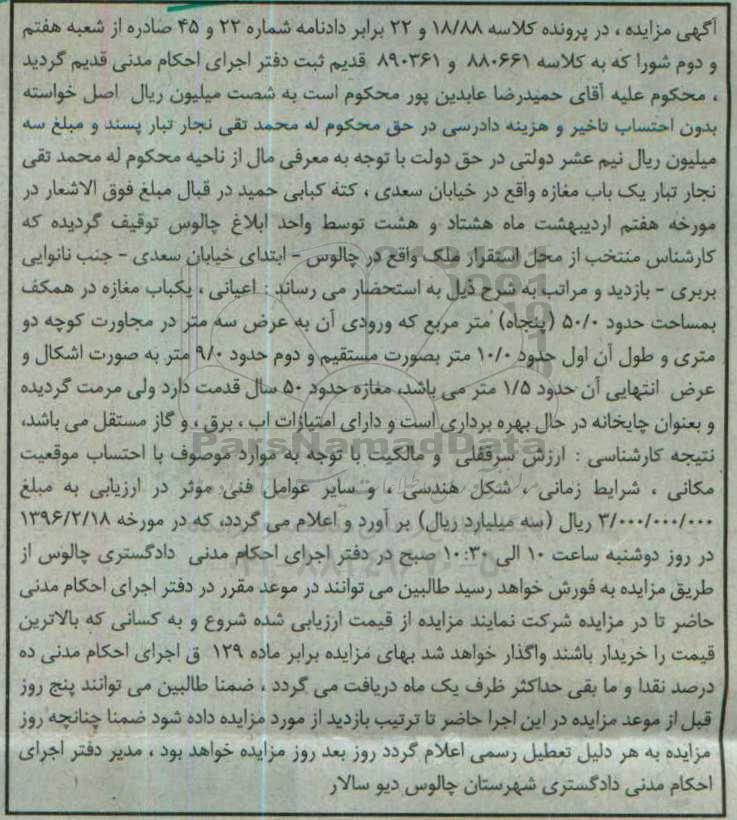 آگهی مزایده ، در پرونده کلاسه ۱۸/۸۸ و ۲۲ برابر دادنامه شماره ۲۲ و ۴۵ صادره از شعبه هفتم
و دوم شورا که به کلاسه ۸۸۰۶۶۱ و ۸۹۰۳۶۱ قدیم ثبت دفتر اجرای احکام مدنی قدیم گردید
، محکوم علیه آقای حمیدرضا عابدین پور محکوم است به شصت میلیون ریال اصل خواسته
بدون احتساب تاخیر و هزینه دادرسی در حق محکوم له محمد تقی نجار تبار پسند و مبلغ سه
میلیون ریال نیم عشر دولتی در حق دولت با توجه به معرفی مال از ناحیه محکوم له محمد تقی
نجار تبار یک باب مغازه واقع در خیابان سعدی ، کته کبابی حمید در قبال مبلغ فوق الاشعار در
مورخه هفتم اردیبهشت ماه هشتاد و هشت توسط واحد ابلاغ چالوس توقیف گردیده که
کارشناس منتخب از محل استقرار ملک واقع در چالوس - ابتدای خیابان سعدی - جنب نانوایی
بربری - بازدید و مراتب به شرح ذیل به استحضار می رساند : اعیانی ، یکباب مغازه در همکف
بمساحت حدود ۵۰/۰ (پنجاه) متر مربع که ورودی آن به عرض سه متر در مجاورت کوچه دو
متری و طول آن اول حدود ۱۰/۰ متر بصورت مستقیم و دوم حدود ۹/۰ متر به صورت اشکال و
عرض انتهایی آن حدود ۱/۵ متر می باشد، مغازه حدود ۵۰ سال قدمت دارد ولی مرمت گردیده
و بعنوان چایخانه در حال بهره برداری است و دارای امتیازات اب ، برق ، و گاز مستقل می باشد،
ParsNamadData
نتیجه کارشناسی : ارزش سرقفلی و مالکیت با توجه به موارد موصوف با احتساب موقعیت
مکانی ، شرایط زمانی ، شکل هندسی ، و سایر عوامل فنی موثر در ارزیابی به مبلغ
۳/۰۰۰/۰۰۰/۰۰۰ ریال (سه میلیارد ریال) بر آورد و اعلام می گردد، که در مورخه ۱۳۹۶/۲/۱۸
در روز دوشنبه ساعت ۱۰ الی ۱۰:۳۰ صبح در دفتر اجرای احکام مدنی دادگستری چالوس از
طریق مزایده به فورش خواهد رسید طالبین می توانند در موعد مقرر در دفتر اجرای احکام مدنی
حاضر تا در مزایده شرکت نمایند مزایده از قیمت ارزیابی شده شروع و به کسانی که بالاترین
قیمت را خریدار باشند واگذار خواهد شد بهای مزایده برابر ماده ۱۲۹ ق اجرای احکام مدنی ده
درصد نقدا و ما بقی حداکثر ظرف یک ماه دریافت می گردد ، ضمنا طالبین می توانند پنج روز
قبل از موعد مزایده در این اجرا حاضر تا ترتیب بازدید از مورد مزایده داده شود ضمنا چنانچه روز
مزایده به هر دلیل تعطیل رسمی اعلام گردد روز بعد روز مزایده خواهد بود ، مدیر دفتر اجرای
احکام مدنی دادگستری شهرستان چالوس دیو سالار